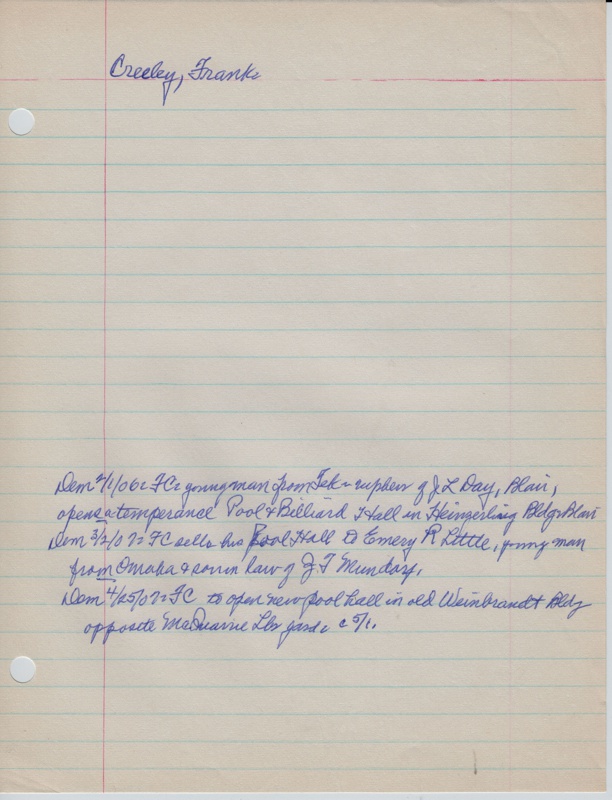 Creeley, Frank
Dem 2/1/06: FC: young man from Tek - nephew of J L Day, Blair,
opens a temperance Pool & Billiard Hall in Heingerling Bldg, Blair
Dem 3/2/07: FC sells his Pool Hall to Emery R Little, young man
from Omaha & son in law of J T Mundorf.
Dem 4/25/07: FC to open new pool hall in old Weinbrandt Bldg
opposite McQuarrie Lbr yard: c 5/1.